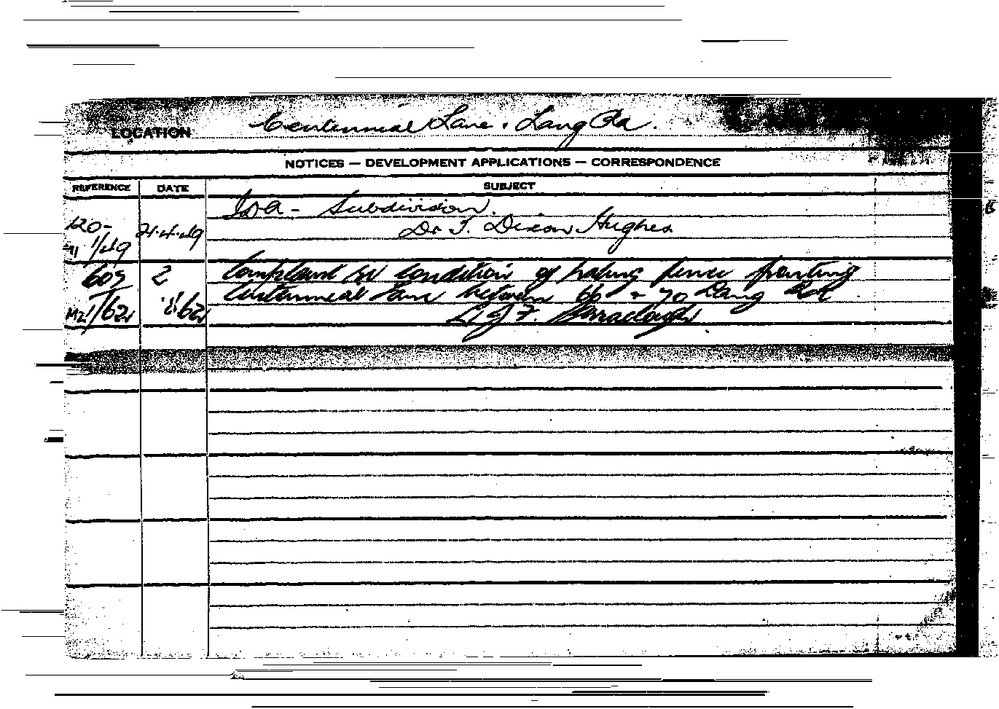 LOCATION Centennial Lane. Lang Rd.
NOTICES — DEVELOPMENT APPLICATIONS — CORRESPONDENCE
REFERENCE DATE SUBJECT
I.D.A - Subdivision.
120- 21.4.49 Dr T. Dixon Hughes
1/49
609 2 Complaint re condition of paling fence fronting
Centennial Lane between 66 & 70 Lang Rd.
1/62 62 F. Barraclough